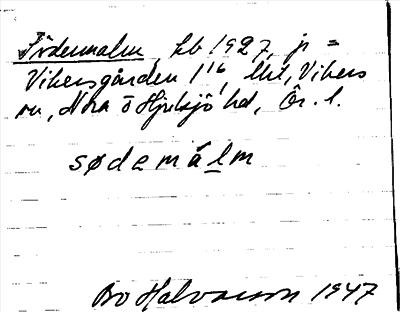 Södermalm, kb 1927, js =
Vikersgården 1¹⁶ Ukt, Vikers
sn, Nora o Hjulsjö hd, Ör. l.
sødemålm
Bo Halvarson 1947